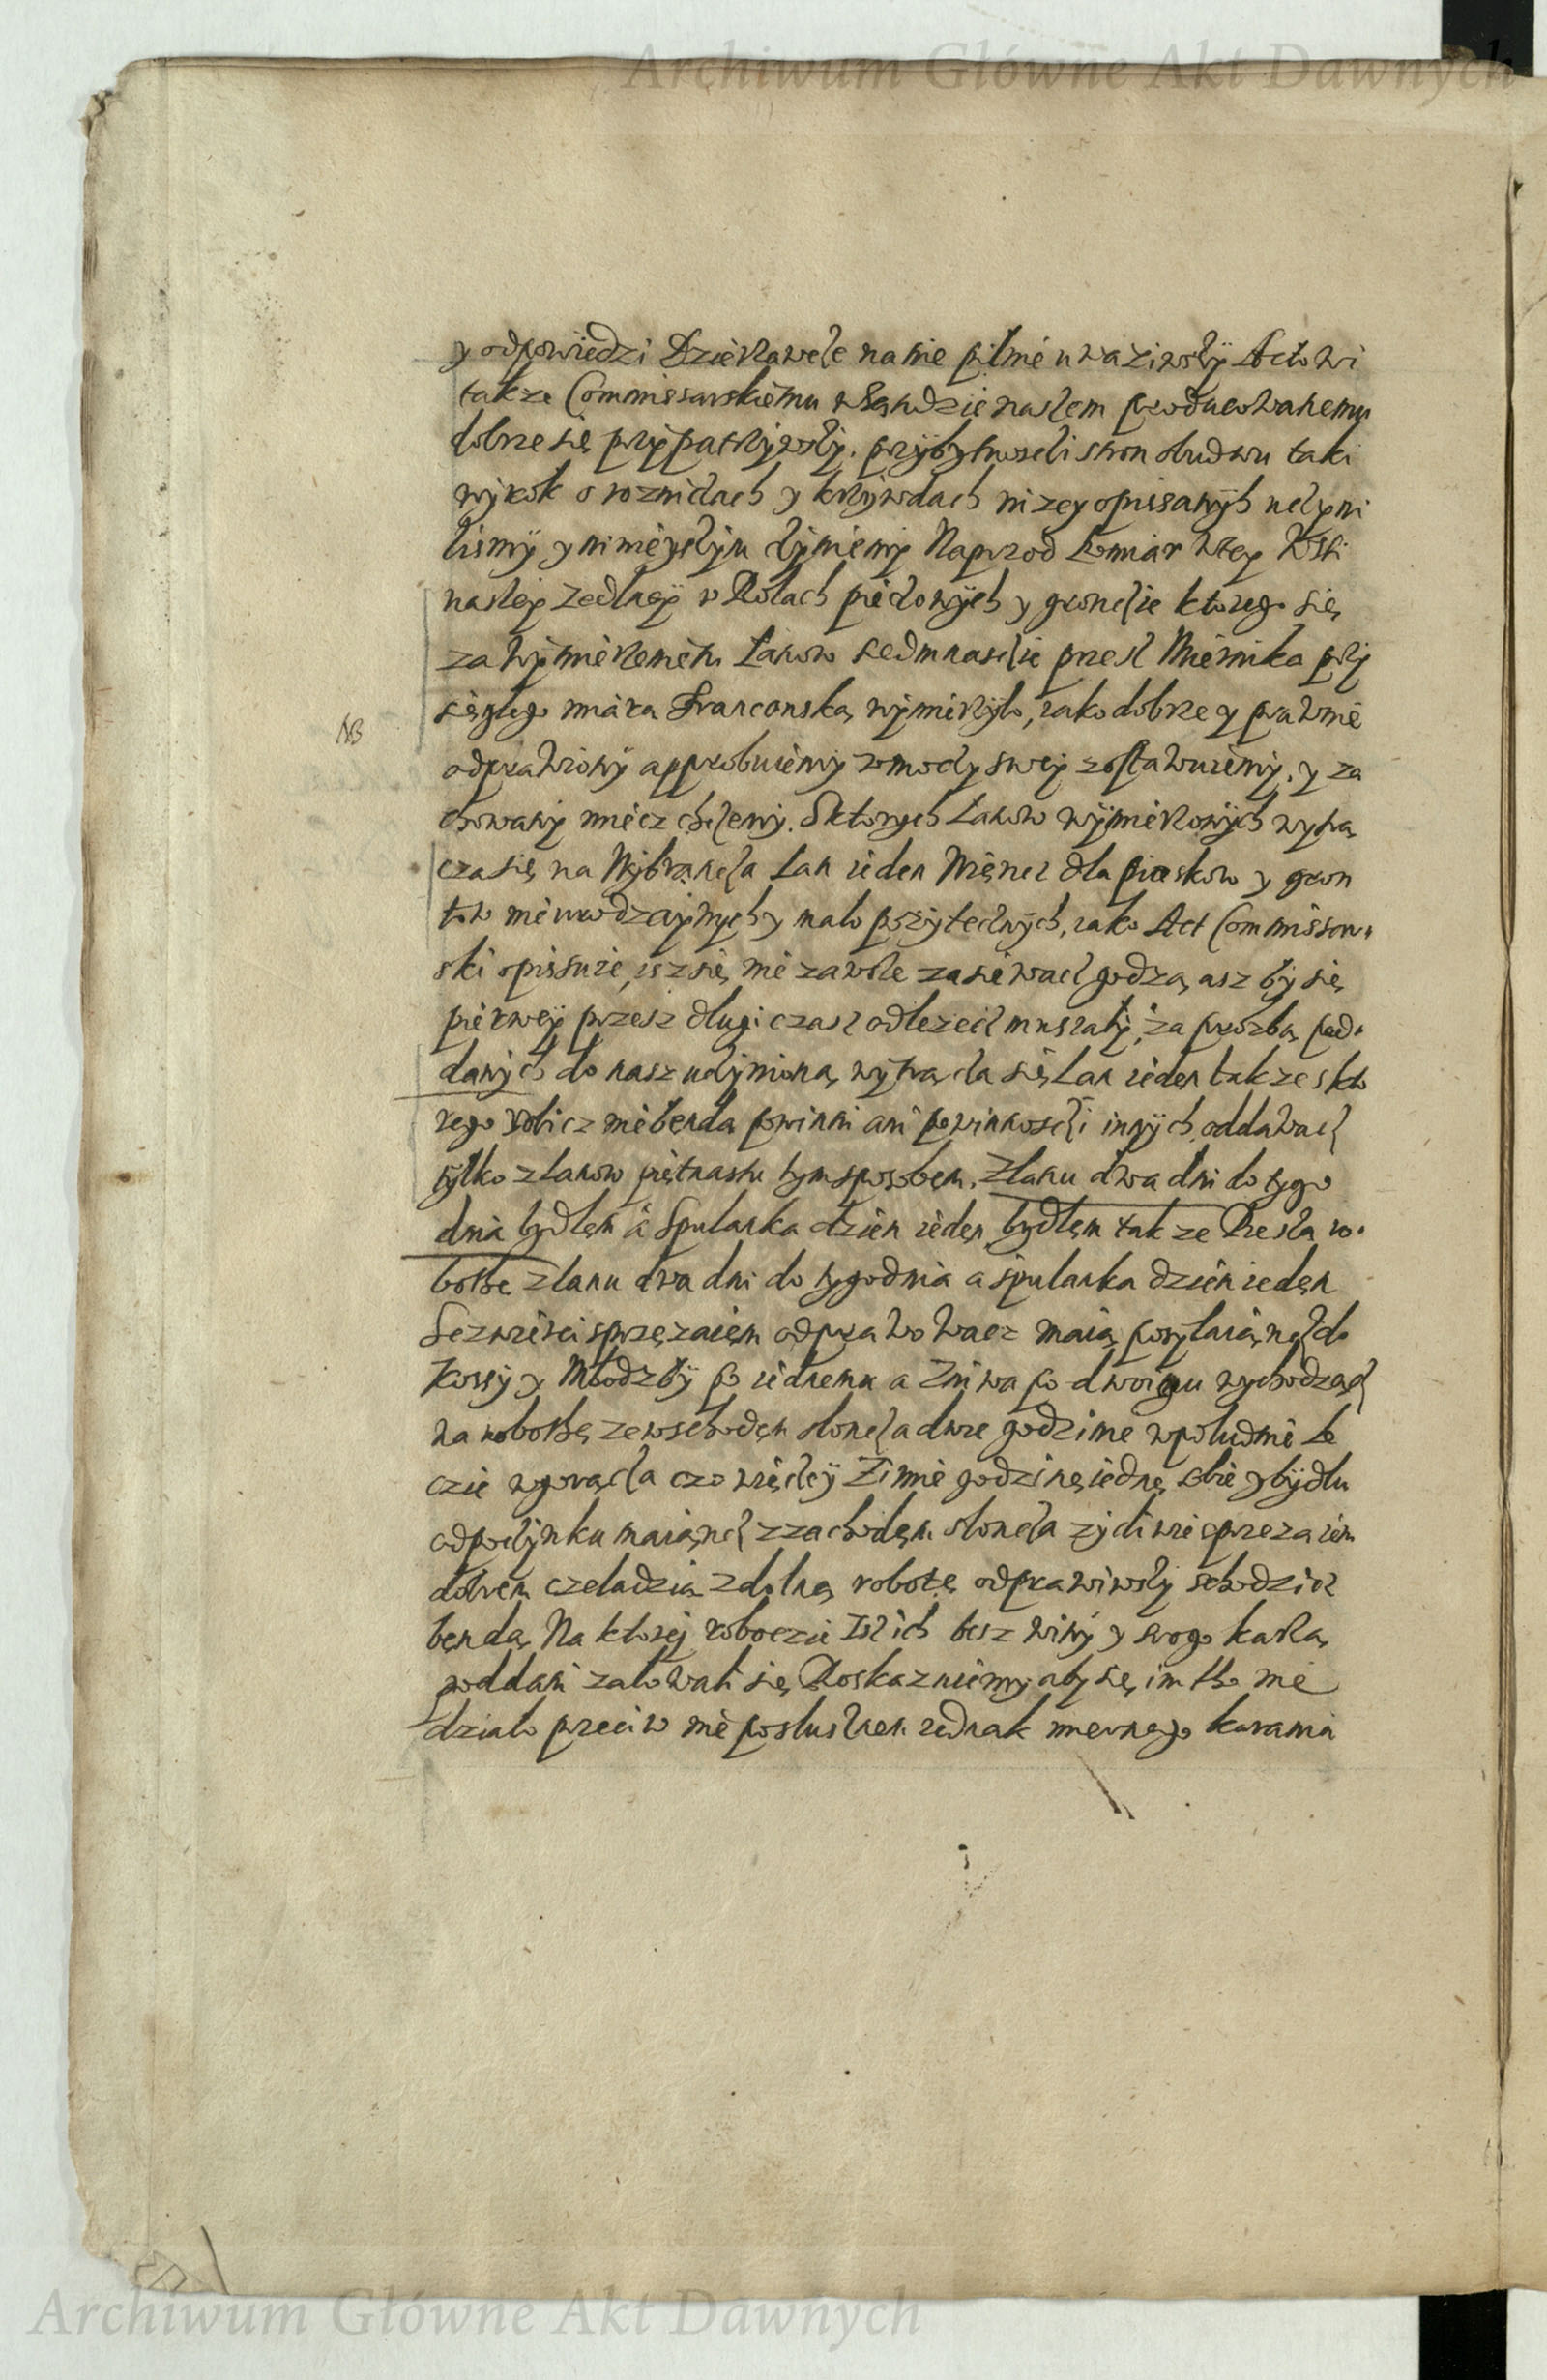 Archiwum Główne Akt Dawnych
y odpowiedzi Dzierzawcze na nie pilnie uwaziwszy Actowi
takze Commissarskiemu w Sandzie naszem producowanemu
dobrze się przypatrzywszy. przy bytnosczi stron obudwu taki
wyrok o roznicach y krzywdach nizey opisanych uczyni
lismy y ninieyszym czyniemy Naprzod Pomiar w tey Wsi
naszey Zedlney w Rolach pieczowych y groncie ktorego się
za wymierzeniem Lanow siedmnasczie przesz Miernika przy
sięgłego miara Franconską wymierzyło, iako dobrze y prawnie
odprawiony approbuiemy w moczy swey zostawuiemy. y za
chowany miecz chczemy. S ktorych Lanow wymierzonych wytrą
cza się na Wybranca Lan ieden Niemei dla piaskow y gron
tow nieurodzaynych y malo pozytecznych, iako Act Commissar
ski opissuie, isz się nie zawsze zasiewacz godzą, asz by się
pierwey przesz długi czasz odlezecz musiały, za prozbą pod
danych do nasz uczynioną, wytrącza się Lan ieden takze s kto
rego robicz nie benda powinni ani powinnosczi innych oddawacz
tylko z lanow piętnastu tym sposobem. Z lanu dwa dni do tygo
dnia bydłem a s pulanka dzien ieden bydłem takze Piesza ro
bothę z lanu dwa dni do tygodnia a s pulanka dzien ieden
Sczwiersci sprzęzaiem odprawowacz maią, posyłaiąncz do
Kossy y Młodzby po iednemu a Zniwa po dwoigu wychodzącz
na robothę ze wschodem slonca dwie godzinie w południe Le
czie w gorącza czo więczey Zimie godzinę iednę sobie y bydłu
odpoczynku maiąncz z zachodem slonca zyczliwie sprzezaiem
dobrem czeladzią zdolną robotę odprawiwszy schodzicz
benda, Na ktorey roboczie Isz ich besz winy y srogo karzą
poddani załowali się, Roskazuiemy aby się im tho nie
działo przeciw nieposlusznem iednak miernego karania
NB
Archiwum Główne Akt Dawnych